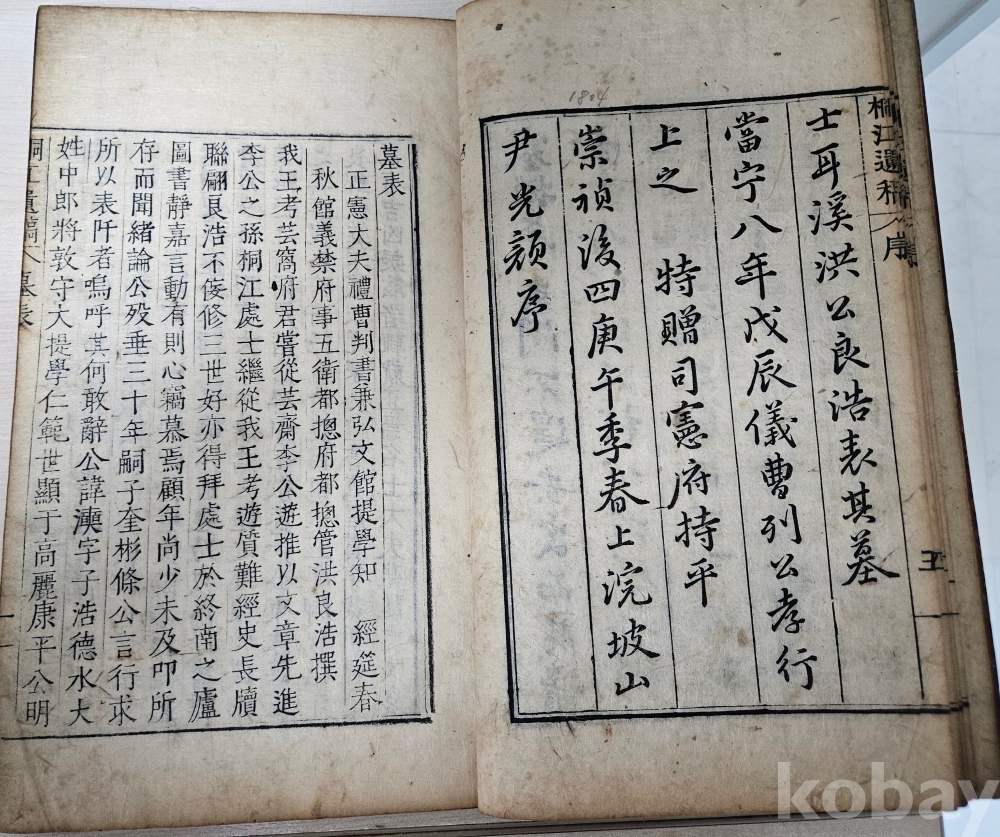 桐江遺稿 序
士耳溪洪公良浩表其墓
當宁八年戊辰儀曹列公孝行
上之 特贈司憲府持平
崇禎後四庚午季春上浣坡山
尹光顔序
五
1804
墓表
正憲大夫禮曹判書兼弘文館提學知 經筵春
秋館義禁府事五衛都摠府都摠管洪良浩撰
我王考芸窩府君嘗從芸齋李公遊推以文章先進
李公之孫桐江處士繼從我王考遊質難經史長牘
聯翩良浩不佞修三世好亦得拜處士於終南之廬
圖書靜嘉言動有則心竊慕焉顧年尚少未及叩所
存而聞緒論公歿垂三十年嗣子奎彬條公言行求
所以表阡者嗚呼其何敢辭公諱漢字子浩德水大
姓中郎將敦守大提學仁範世顯于高麗康平公明
桐江遺稿 墓表
一
kobay